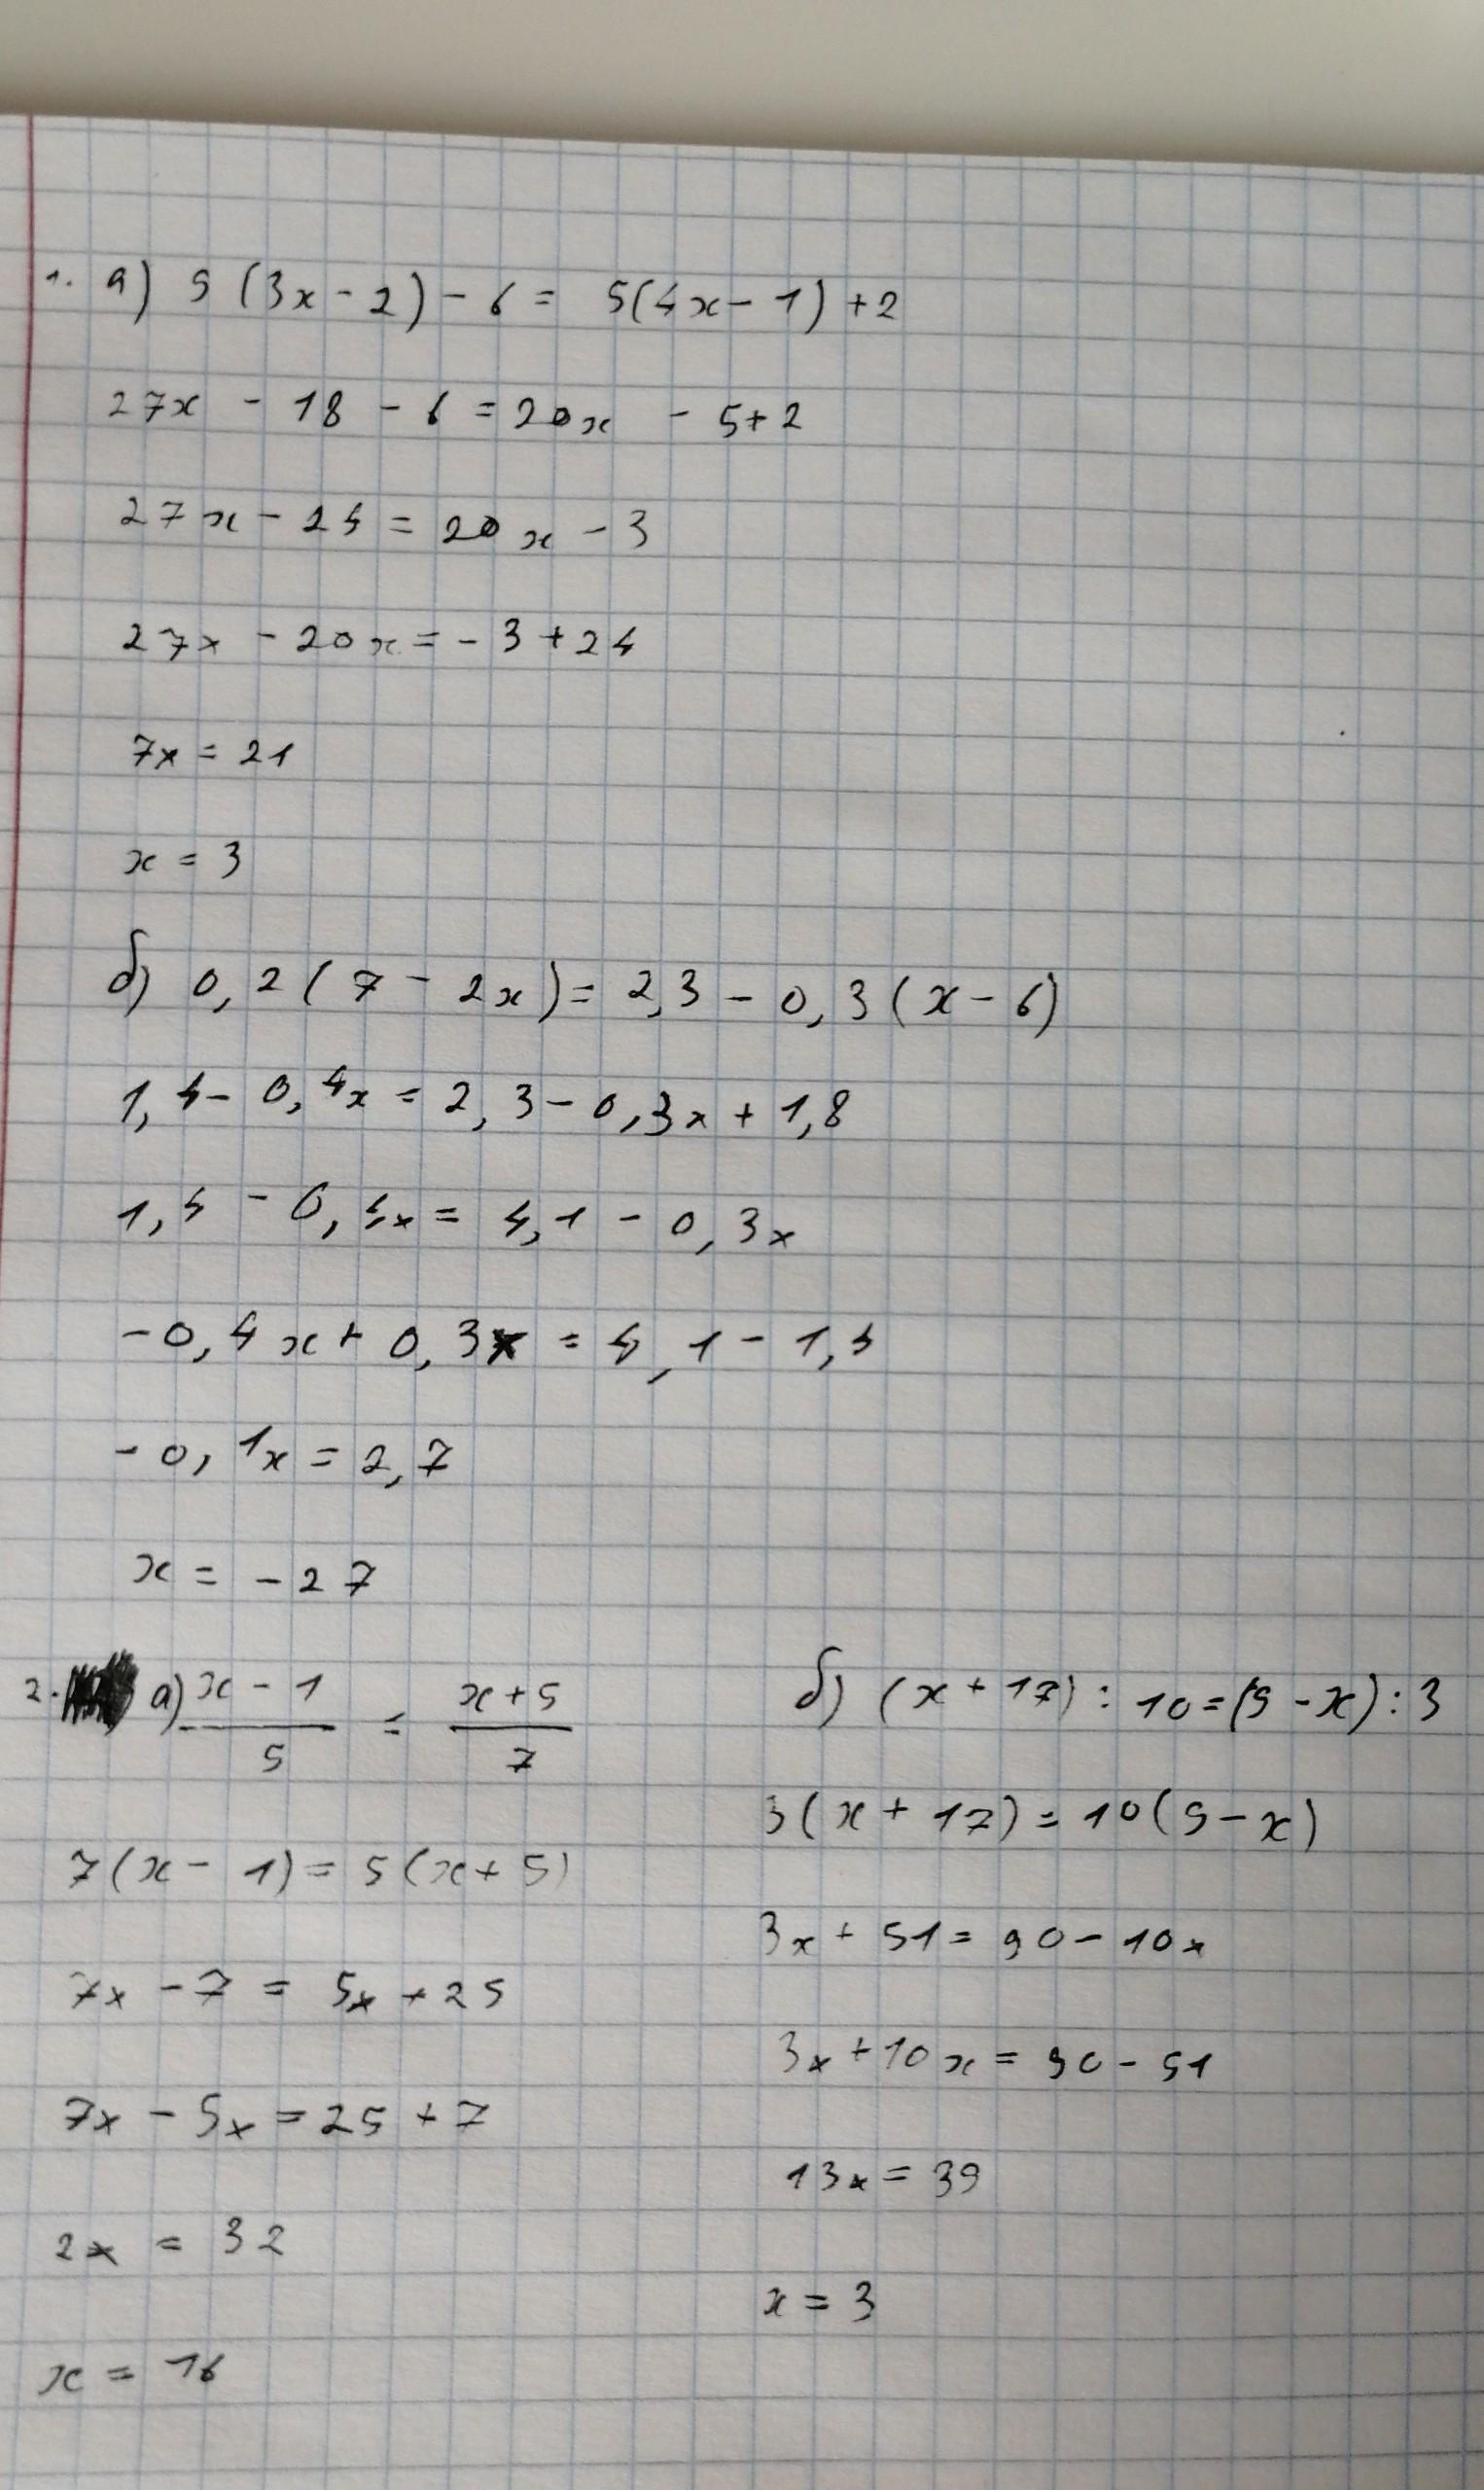 1. а) 9 (3x - 2) - 6 = 5(4x - 1) + 2
27x - 18 - 6 = 20x - 5 + 2
27x - 24 = 20x - 3
27x - 20x = - 3 + 24
7x = 21
x = 3
б) 0,2 ( 7 - 2x ) = 2,3 - 0,3 (x - 6)
1,4 - 0,4x = 2,3 - 0,3x + 1,8
1,4 - 0,4x = 4,1 - 0,3x
-0,4x + 0,3x = 4,1 - 1,4
-0,1x = 2,7
x = -27
2. а) x - 1 / 5 = x + 5 / 7
7(x - 1) = 5(x + 5)
7x - 7 = 5x + 25
7x - 5x = 25 + 7
2x = 32
x = 16
б) (x + 17) : 10 = (9 - x) : 3
3(x + 17) = 10(9 - x)
3x + 51 = 90 - 10x
3x + 10x = 90 - 51
13x = 39
x = 3